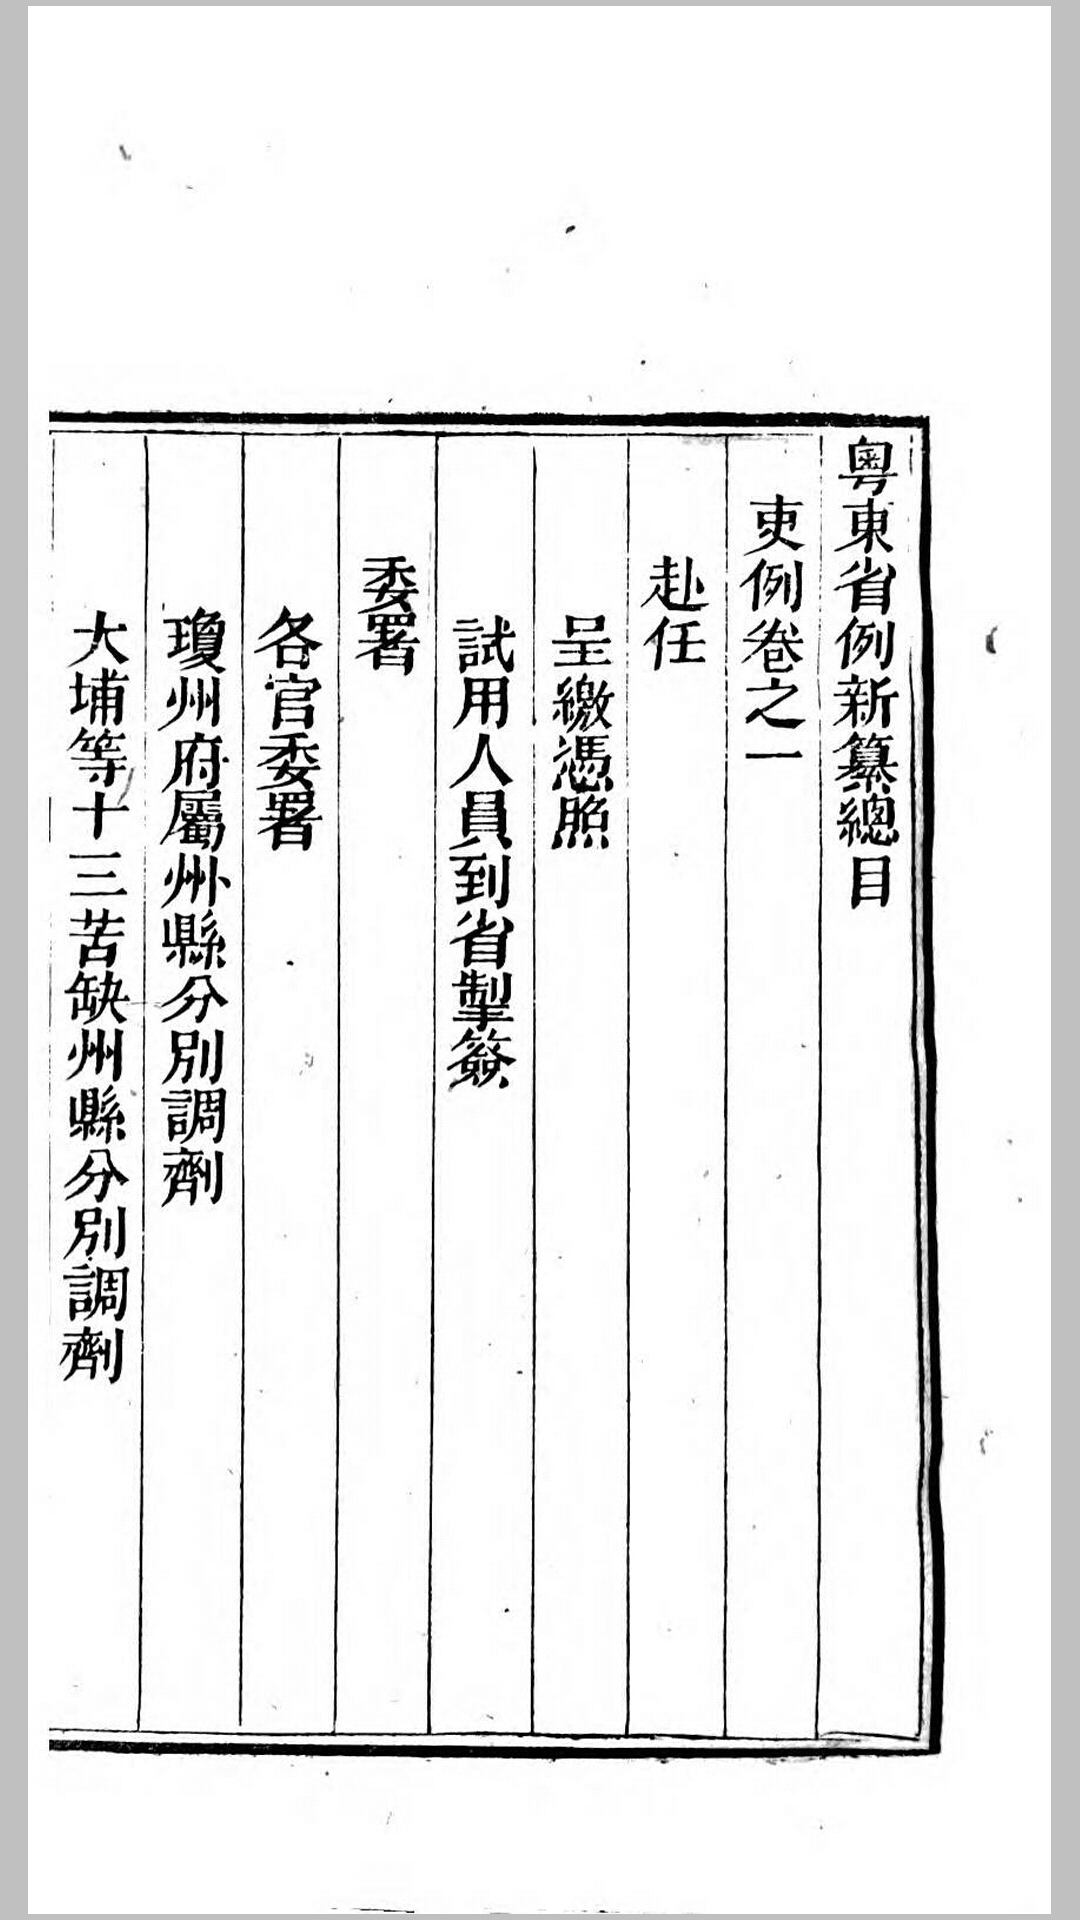 粵東省例新纂總目
吏例卷之一
赴任
呈繳憑照
試用人員到省掣簽
委署
各官委署
瓊州府屬州縣分別調劑
大埔等十三苦缺州縣分別調劑